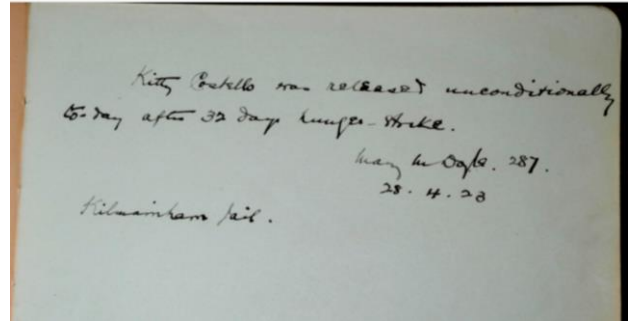 Kitty Costello was released unconditionally
to-day after 32 days hunger-strike.
Mary M Doyle. 287.
28. 4. 23
Kilmainham Jail.